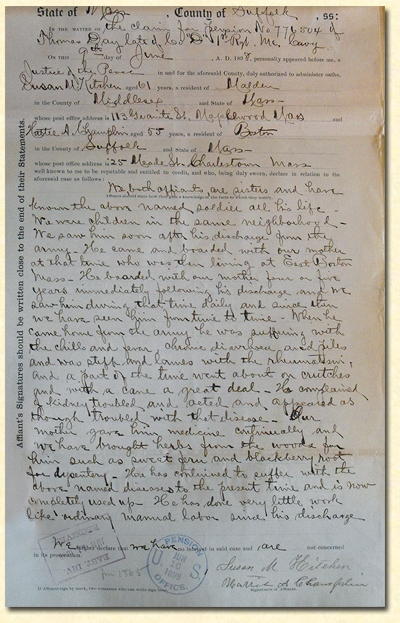 State of Mass, County of Suffolk, ss:
IN THE MATTER OF the claim for pension No 771504 of
Thomas Day late of Co D 1st Rgt Me. Cavy
ON THIS 9th DAY OF June, A. D. 1898, personally appeared before me, a
Justice of the Peace in and for the aforesaid County, duly authorized to administer oaths,
Susan M Hitchen aged 61 years, a resident of Malden
in the County of Middlesex and State of Mass
whose post office address is 113 Waite St. Maplewood Mass and
Hattie A. Champlin aged 55 years, a resident of Boston
in the County of Suffolk and State of Mass
whose post office address is 25 Meade St. Charlestown Mass
well known to me to be reputable and entitled to credit, and who, being duly sworn, declare in relation to the
aforesaid case as follows:
We both affiants are sisters and have
known the above named soldier all his life
We were children in the same neighborhood-
We saw him soon after his discharge from the
army- He came and boarded with our mother
at that time who was then living at East Boston
Mass- He boarded with our mother four or five
years immediately following his discharge and we
saw him during that time daily and since then
we have seen him from time to time- When he
came home from the army he was suffering with
the chills and fever, chronic diarrhoea, and piles
and was stiff and lame with the rheumatism,
and a part of the time went about on crutches
and with a cane a great deal- He complained
of kidney troubled and acted and appeared as
though troubled with that disease- Our
mother gave him medicine continually and
we have brought herbs from the woods for
him such as sweet fern and blackberry root
for dysentery- He has continued to suffer with the
above named diseases to the present time and is now
completely used up- He has done very little work
like ordinary manual labor since his discharge
We further declare that we have no interest in said case and are not concerned
in its prosecution.
Susan M. Hitchen
Hattie A Champlin
Signatures of Affiants.
If Affiants sign by mark, two witnesses who can write sign here.
U.S. PENSION OFFICE JUN 10 1898
Affiant's Signatures should be written close to the end of their Statements.